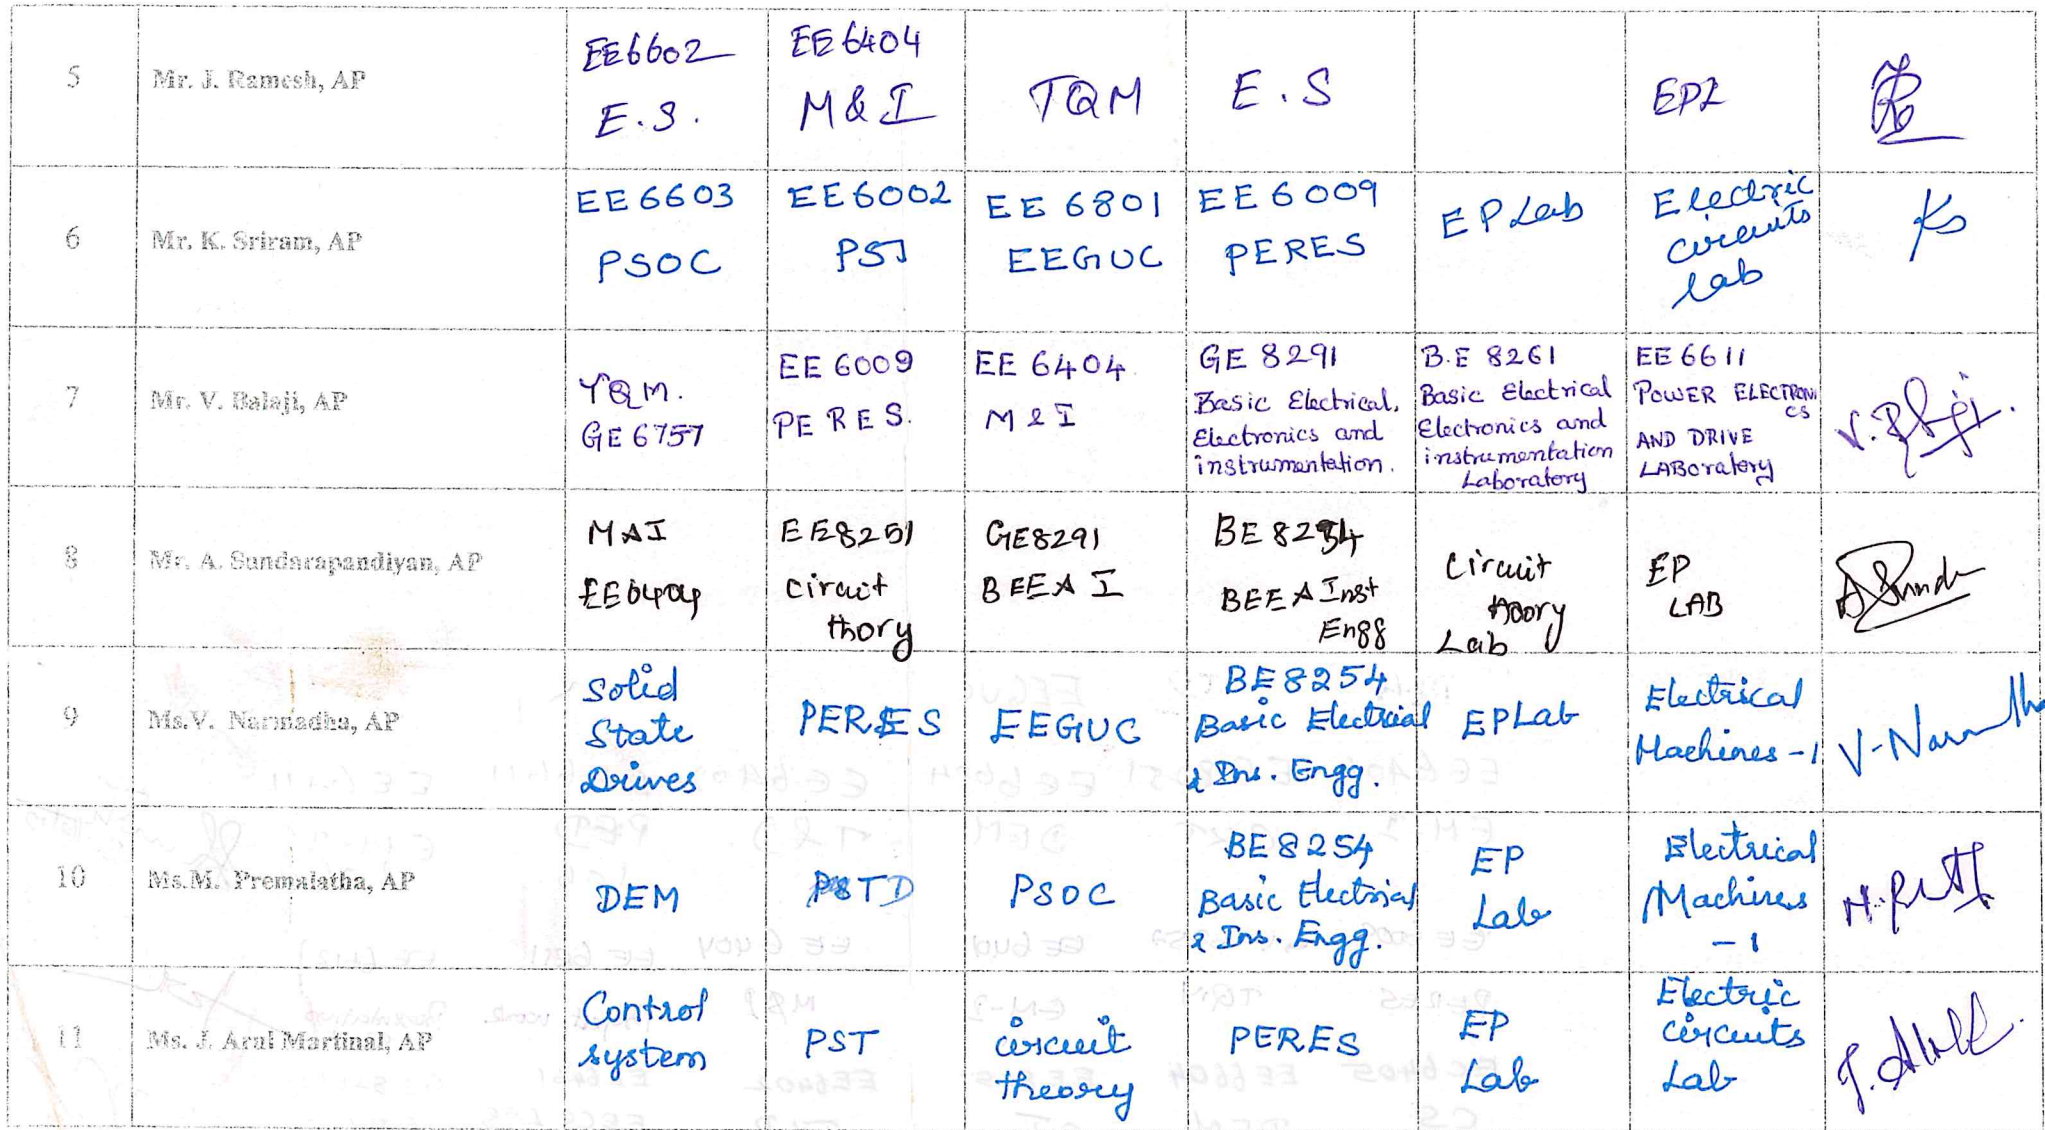 5
Mr. J. Ramesh, AP
EE6602
E.S.
EE6404
M&I
TQM
E.S
6
Mr. K. Sriram, AP
EE6603
PSOC
EE6002
EE 6801
EEGUC
EE 6009
PERES
EP Lab
Electric
circuits
lab
Ks
7
Mr. V. Balaji, AP
TQM.
GE6757
EE 6009
PERES.
EE 6404
M&I
GE 8291
Basic Electrical,
Electronics and
instrumentation.
B.E 8261
Basic Electrical
Electronics and
instrumentation
Laboratory
EE 6611
POWER ELECTRONI
CS
AND DRIVE
LABoratory
8
Mr. A. Sundarapandiyan, AP
MAI
EE6404
EE8251
circuit
thory
GE8291
BEEAI
BEEA Inst
Engg
Circuit
Lab
EP
LAB
9
Ms.V. Narmadha, AP
Solid
State
Drives
PERES
EEGUC
BE8254
Basic Electrical
& Ins. Engg.
EPLab
Electrical
Machines-1
10
Ms.M. Premalatha, AP
DEM
PSTD
PSOC
BE8254
Basic Electrical
& Ins. Engg.
EP
Lab
Electrical
Machines
-1
11
Ms. J. Arul Martinal, AP
Control
system
PST
circuit
theory
PERES
EP
Lab
Electric
circuits
Lab